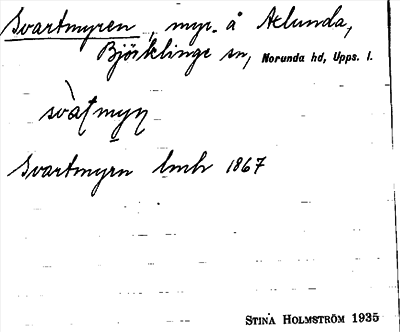 Svartmyren, myr. å Älunda,
Björklinge sn, Norunda hd, Upps. l.
Svartmyrn lmh 1867
STINA HOLMSTRÖM 1935